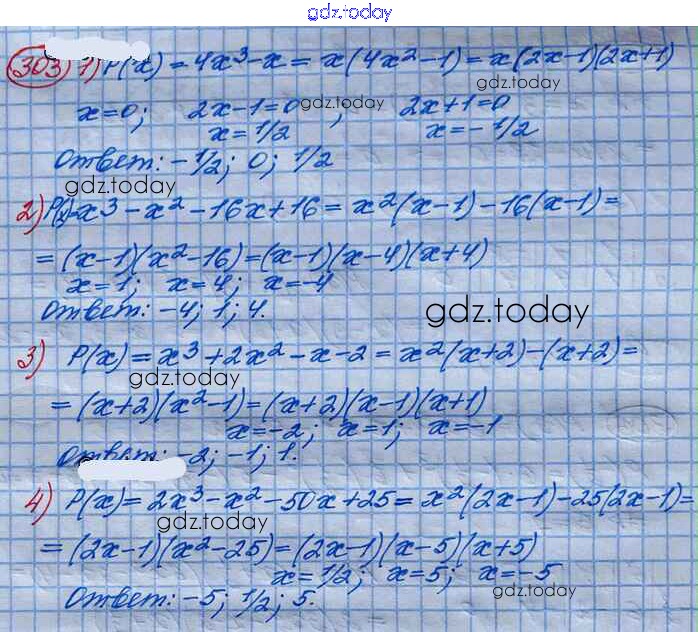 gdz.today
303) 1) P(x) = 4x³ - x = x(4x² - 1) = x(2x-1)(2x+1)
gdz.today
x=0; 2x-1=0 gdz.today , 2x+1=0
x=1/2 x=-1/2
Ответ: -1/2; 0; 1/2
gdz.today
2) P(x)=x³-x²-16x+16 = x²(x-1)-16(x-1)=
=(x-1)(x²-16)=(x-1)(x-4)(x+4)
x=1; x=4; x=-4
Ответ: -4; 1; 4.
gdz.today
3) P(x)=x³+2x²-x-2=x²(x+2)-(x+2)=
gdz.today
=(x+2)(x²-1)=(x+2)(x-1)(x+1)
x=-2; x=1; x=-1
Ответ: -2; -1; 1.
4) P(x)=2x³-x²-50x+25=x²(2x-1)-25(2x-1)=
gdz.today
=(2x-1)(x²-25)=(2x-1)(x-5)(x+5)
x=1/2; x=5; x=-5
gdz.today
Ответ: -5; 1/2; 5.